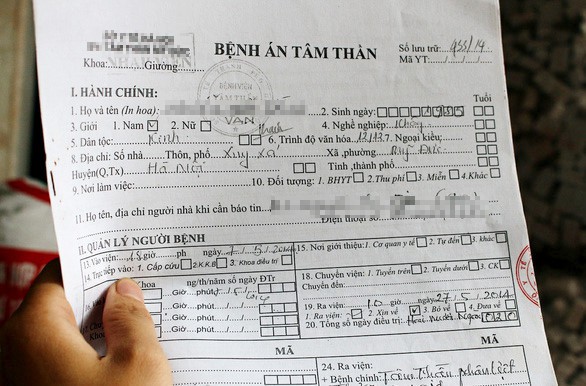 BỆNH ÁN TÂM THẦN
Số lưu trữ: 955/14
Khoa: Giường:
Mã YT:
BỆNH VIỆN
I. HÀNH CHÍNH:
Tuổi
1. Họ và tên (In hoa): 2. Sinh ngày:
VẠN
3. Giới 1. Nam 2. Nữ Thạch 4. Nghề nghiệp:
5. Dân tộc: Kinh 6. Trình độ văn hóa: 12/12 7. Ngoại kiều:
8. Địa chỉ: Số nhà Thôn, phố Xuy Xá Xã ,phường: Mỹ Đức
Huyện(Q.Tx) Hà Nội Tỉnh ,thành phố
9. Nơi làm việc: 10. Đối tượng: 1. BHYT 2. Thu phí 3. Miễn 4. Khác
11. Họ tên, địa chỉ người nhà khi cần báo tin
Điện thoại số
II. QUẢN LÝ NGƯỜI BỆNH
13. Vào viện: 18 giờ ph ngày 7/5/2014
15. Nơi giới thiệu: 1. Cơ quan y tế 2. Tự đến 3. khác
14. Trực tiếp vào: 1. Cấp cứu 2.K.K.B 3. Khoa điều trị
Khoa ng/th/năm số ngày ĐTr
18. Chuyển viện: 1. Tuyến trên 2. Tuyến dưới 3. CK
Giờ phút
Chuyển đến:
Giờ phút
19. Ra viện: 10 giờ ngày 27/5/2014
1. Ra viện: 2. Xin về 3. Bỏ về 4. Đưa về
Giờ phút
20. Tổng số ngày điều trị: Hai mươi ngày 020
MÃ
MÃ
24. Ra viện:
+ Bệnh chính: Tâm thần phân liệt